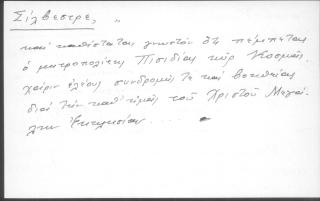 Σίλβεστρε, "
καὶ καθίσταται γνωστὸν ὅτι πέμπεται
ὁ μητροπολίτης Πισιδίας κὺρ Κοσμᾶς
χάριν ἐλέους συνδρομῆς τε καὶ βοηθείας
διὰ τὴν καθ' ἡμᾶς τοῦ Χριστοῦ Μεγά-
λην Ἐκκλησίαν.....